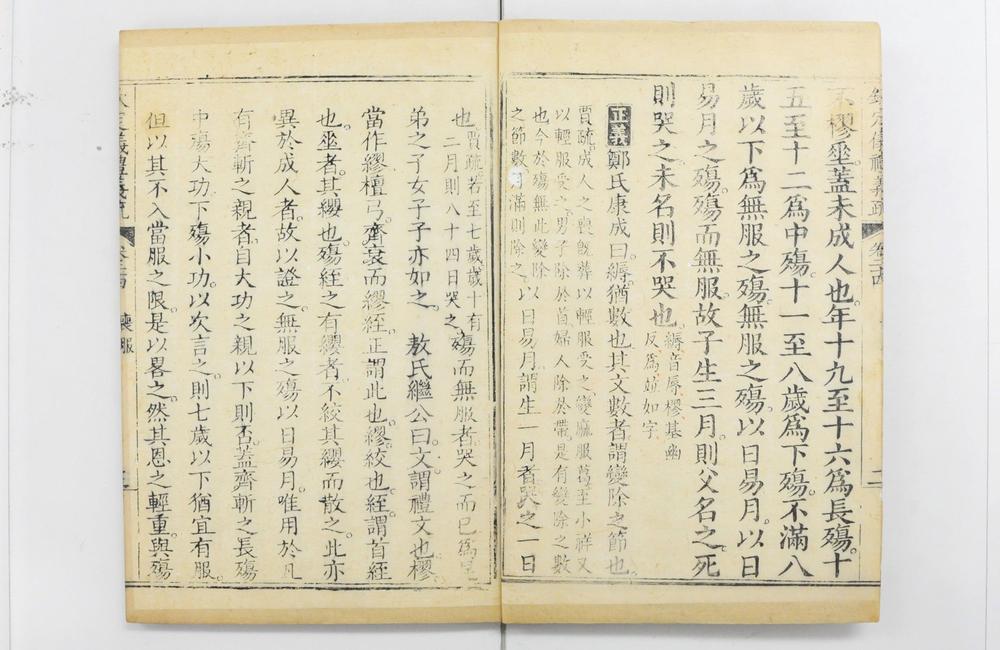 欽定儀禮義疏
二
不樛垂蓋未成人也年十九至十六爲長殤十
五至十二爲中殤十一至八歲爲下殤不滿八
歲以下爲無服之殤無服之殤以日易月以日
易月之殤殤而無服故子生三月則父名之死
則哭之未名則不哭也
縟音辱樛基幽
反爲並如字
正義鄭氏康成曰縟猶數也其文數者謂變除之節也
賈疏成人之喪旣葬以輕服受之變麻服葛至小祥又
以輕服受之男子除於首婦人除於帶是有變除之數
也今於殤無此變除
之節數月滿則除之
以日易月謂生一月者哭之一日
也
賈疏若至七歲歲十有
二月則八十四日哭之
殤而無服者哭之而已爲昆
弟之子女子子亦如之 敖氏繼公曰文謂禮文也樛
當作繆檀弓齊衰而繆絰正謂此也繆絞也絰謂首絰
也垂者其纓也殤絰之有纓者不絞其纓而散之此亦
異於成人者故以證之無服之殤以日易月唯用於凡
有齊斬之親者自大功之親以下則否蓋齊斬之長殤
中殤大功下殤小功以次言之則七歲以下猶宜有服
但以其不入當服之限是以畧之然其恩之輕重與殤
定儀禮義疏
喪服
三